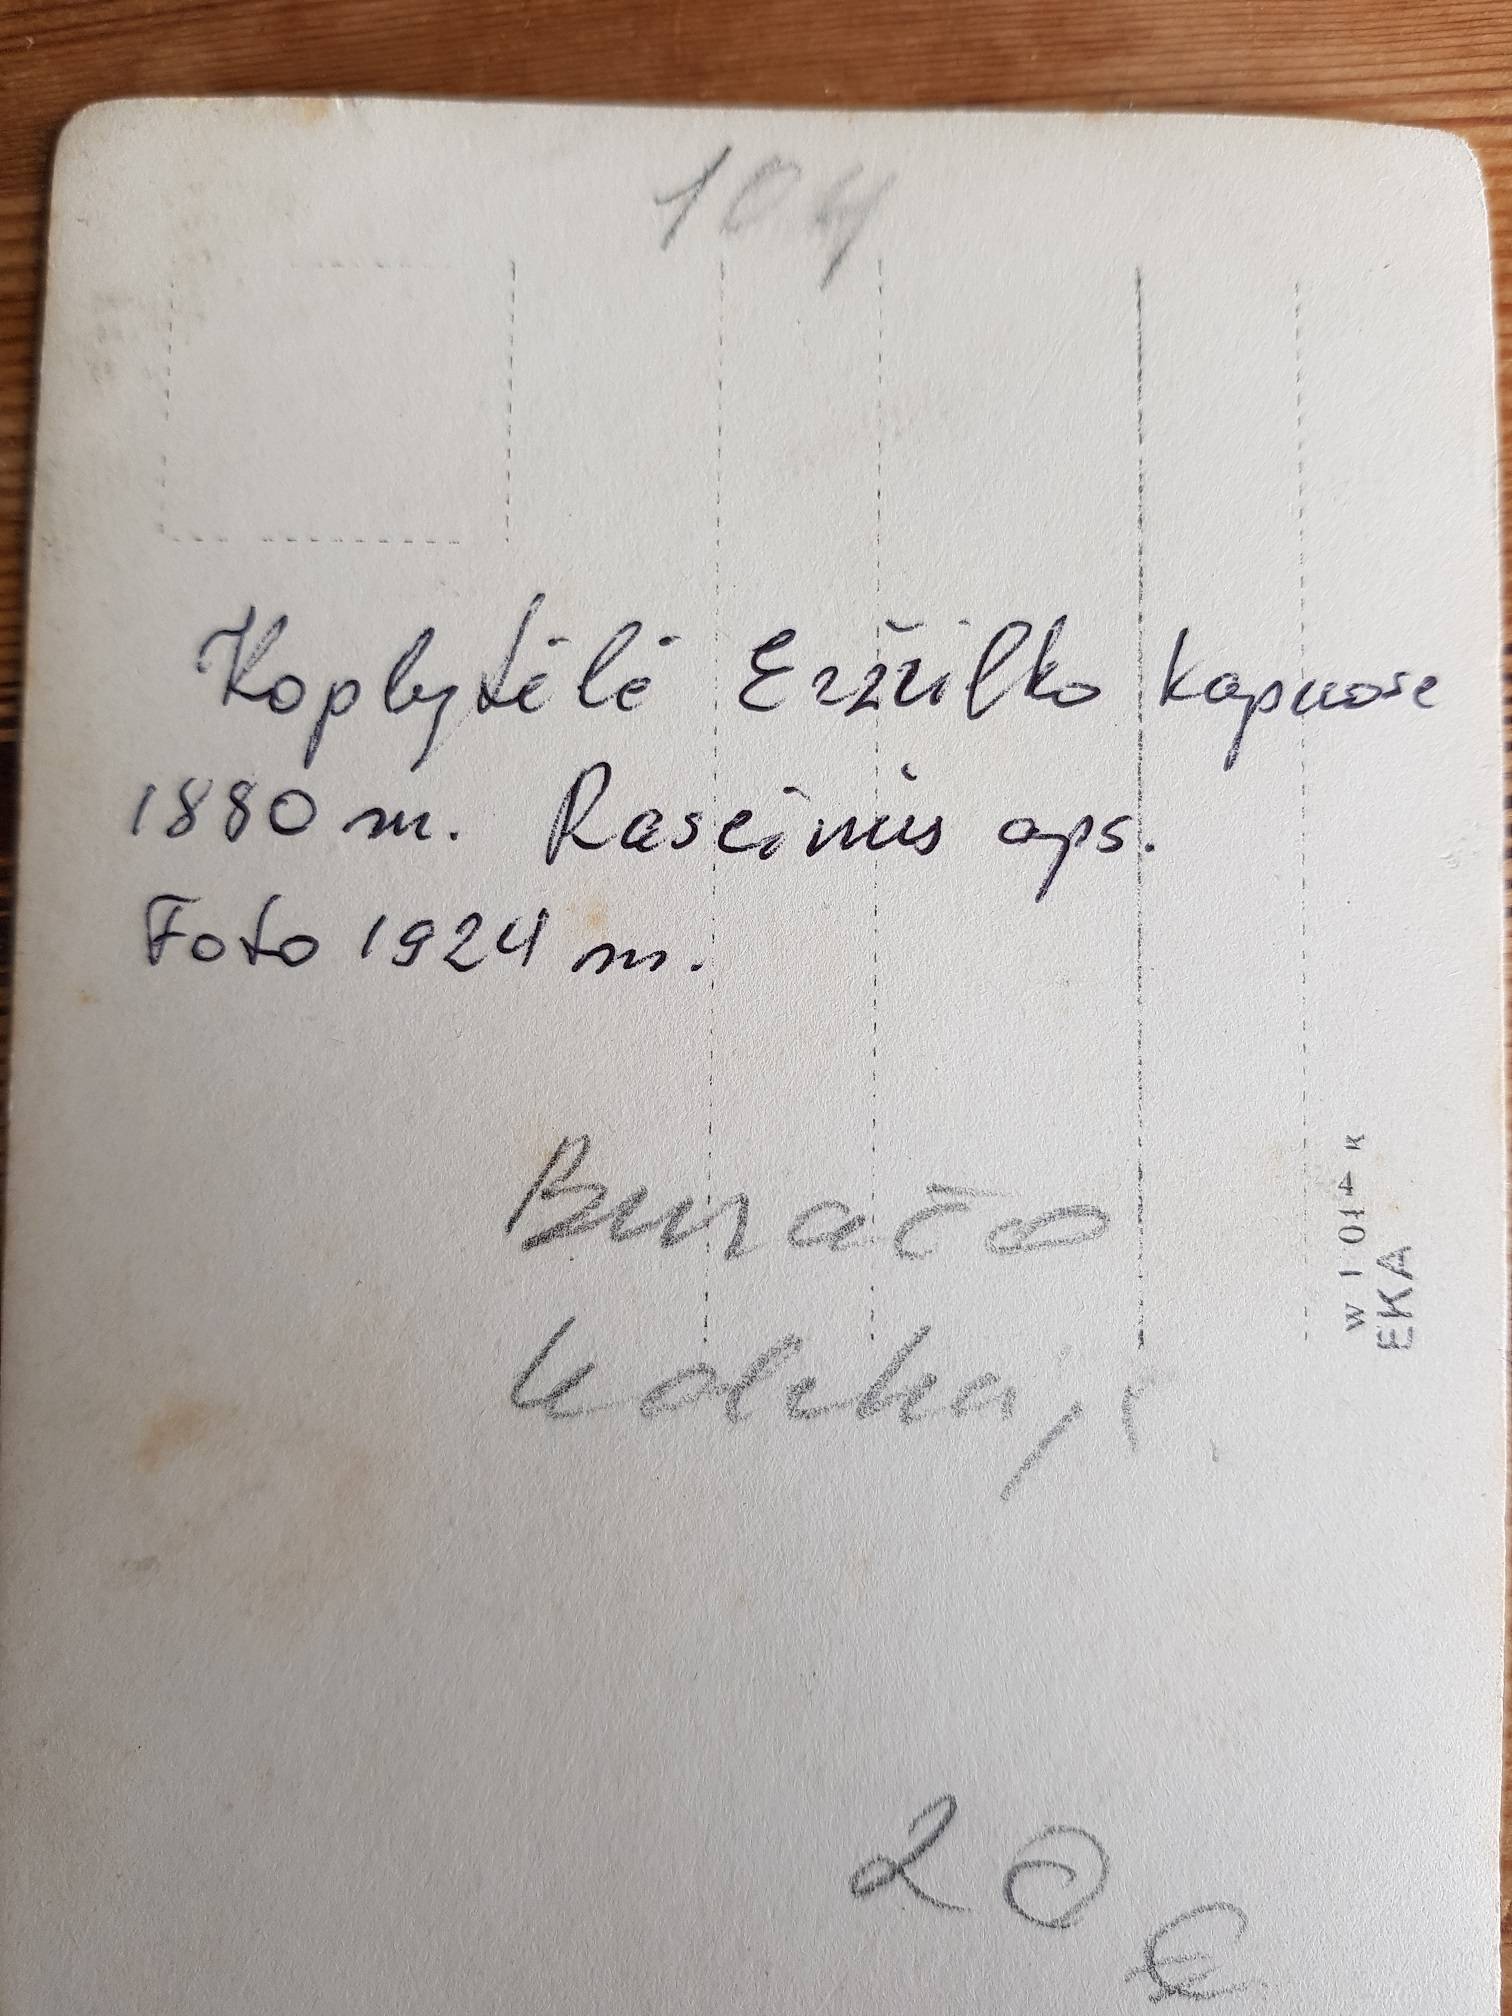 104
Koplytėlė Eržvilko kapuose
1880 m. Raseinių aps.
Foto 1924 m.
Buračo
kolekcija
W 1044 K
EKA
20 €